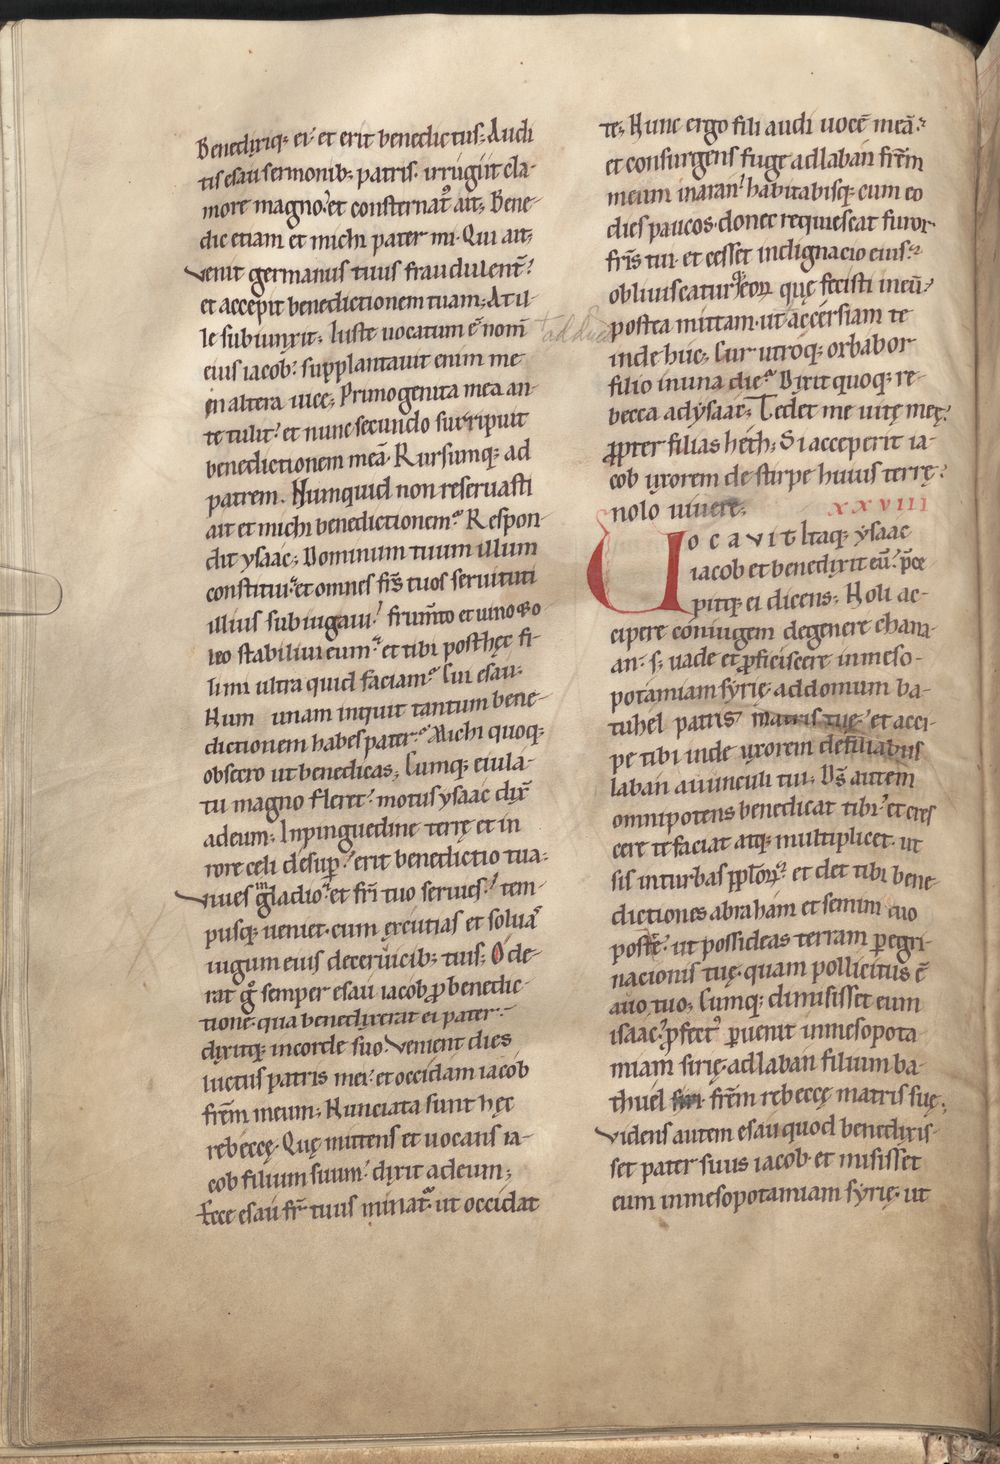 Benedixiq; ei. et erit benedictus; Audi
tis esau sermonib; patris. irrugiit cla-
more magno. et consternat᷒ ait; Bene-
dic etiam et michi pater mi. Qui ait;
venit germanus tuus fraudulent̄.
et accepit benedictionem tuam; At il-
le subiunxit; Iuste uocatum ē nom̄
eius iacob. supplantauit enim me
in altera uice; Primogenita mea an-
te tulit. et nunc secundo surripuit
benedictionem meā. Rursumq; ad
patrem. Numquid non reseruasti
ait et michi benedictionem? Respon-
dit ysaac; Dominum tuum illum
constitui. et omnes frs̄ tuos seruituti
illius subiugaui. frum̄to et uino &o
leo stabiliui eum. et tibi post hęc fi-
li mi ultra quid faciam? Cui esau.
Num unam inquit tantum bene-
dictionem habes pater? Michi quoq;
obsecro ut benedicas; Cumq; eiula-
tu magno fleret. motus ysaac dix̄
ad eum; Inpinguedine terrę et in
rore celi desup̱. erit benedictio tua.
viues gladio. et fri̅ tuo seruies. tem-
pusq; ueniet. cum excutias et soluat᷒
iugum eius de ceruicib; tuis; Ode-
rat gͦ semper esau iacob ꝓ benedic-
tione. qua benedixerat ei pater.
dixitq; in corde suo. Venient dies
luctus patris mei. et occidam iacob
frēm meum; Nunciata sunt hęc
rebeccę. Quę mittens et uocans ia-
cob filium suum. dixit ad eum;
Ecce esau fr̄ tuus minat᷒. ut occidat
te; Nunc ergo fili audi uocē meā.
et consurgens fuge ad laban frēm
meum in aran. habitabisq; cum eo
dies paucos. donec requiescat furor
fris̄ tui. et cesset indignacio eius.
obliuiscaturq; eoꝝ quę fecisti in eū.
postea mittam. ut accersiam te
adduca
inde huc; Cur utroq; orbabor
filio in una die? Dixit quoq; re-
becca ad ysaac; Tedet me uitę meę.
ꝓpter filias heth; Si acceperit ia-
cob uxorem de stirpe huius terrę.
nolo uiuere; xxviii
Uocavit Itaq; ysaac
iacob et benedixit eū. p̄ce
pitq; ei dicens; Noli ac-
cipere coniugem de genere chana-
an. s; uade et ꝓficiscere in meso-
potamiam syrię. ad domum ba-
tuhel patris matris tuę. et acci-
pe tibi inde uxorem de filiabus
laban auunculi tui; Ds̄ autem
omnipotens benedicat tibi. et cres
cere te faciat atq; multiplicet. ut
sis in turbas pp̄loꝝ. et det tibi bene-
dictiones abraham et semini tuo
post te. ut possideas terram ꝑegri-
nacionis tuę. quam pollicitus ē
auo tuo; Cumq; dimisisset eum
isaac. ꝓfect᷒ ꝑuenit in mesopota
miam sirię. ad laban filium ba-
thuel frēm rebeccę matris suę;
Videns autem esau quod benedixis-
set pater suus iacob. et misisset
eum in mesopotamiam syrię. ut